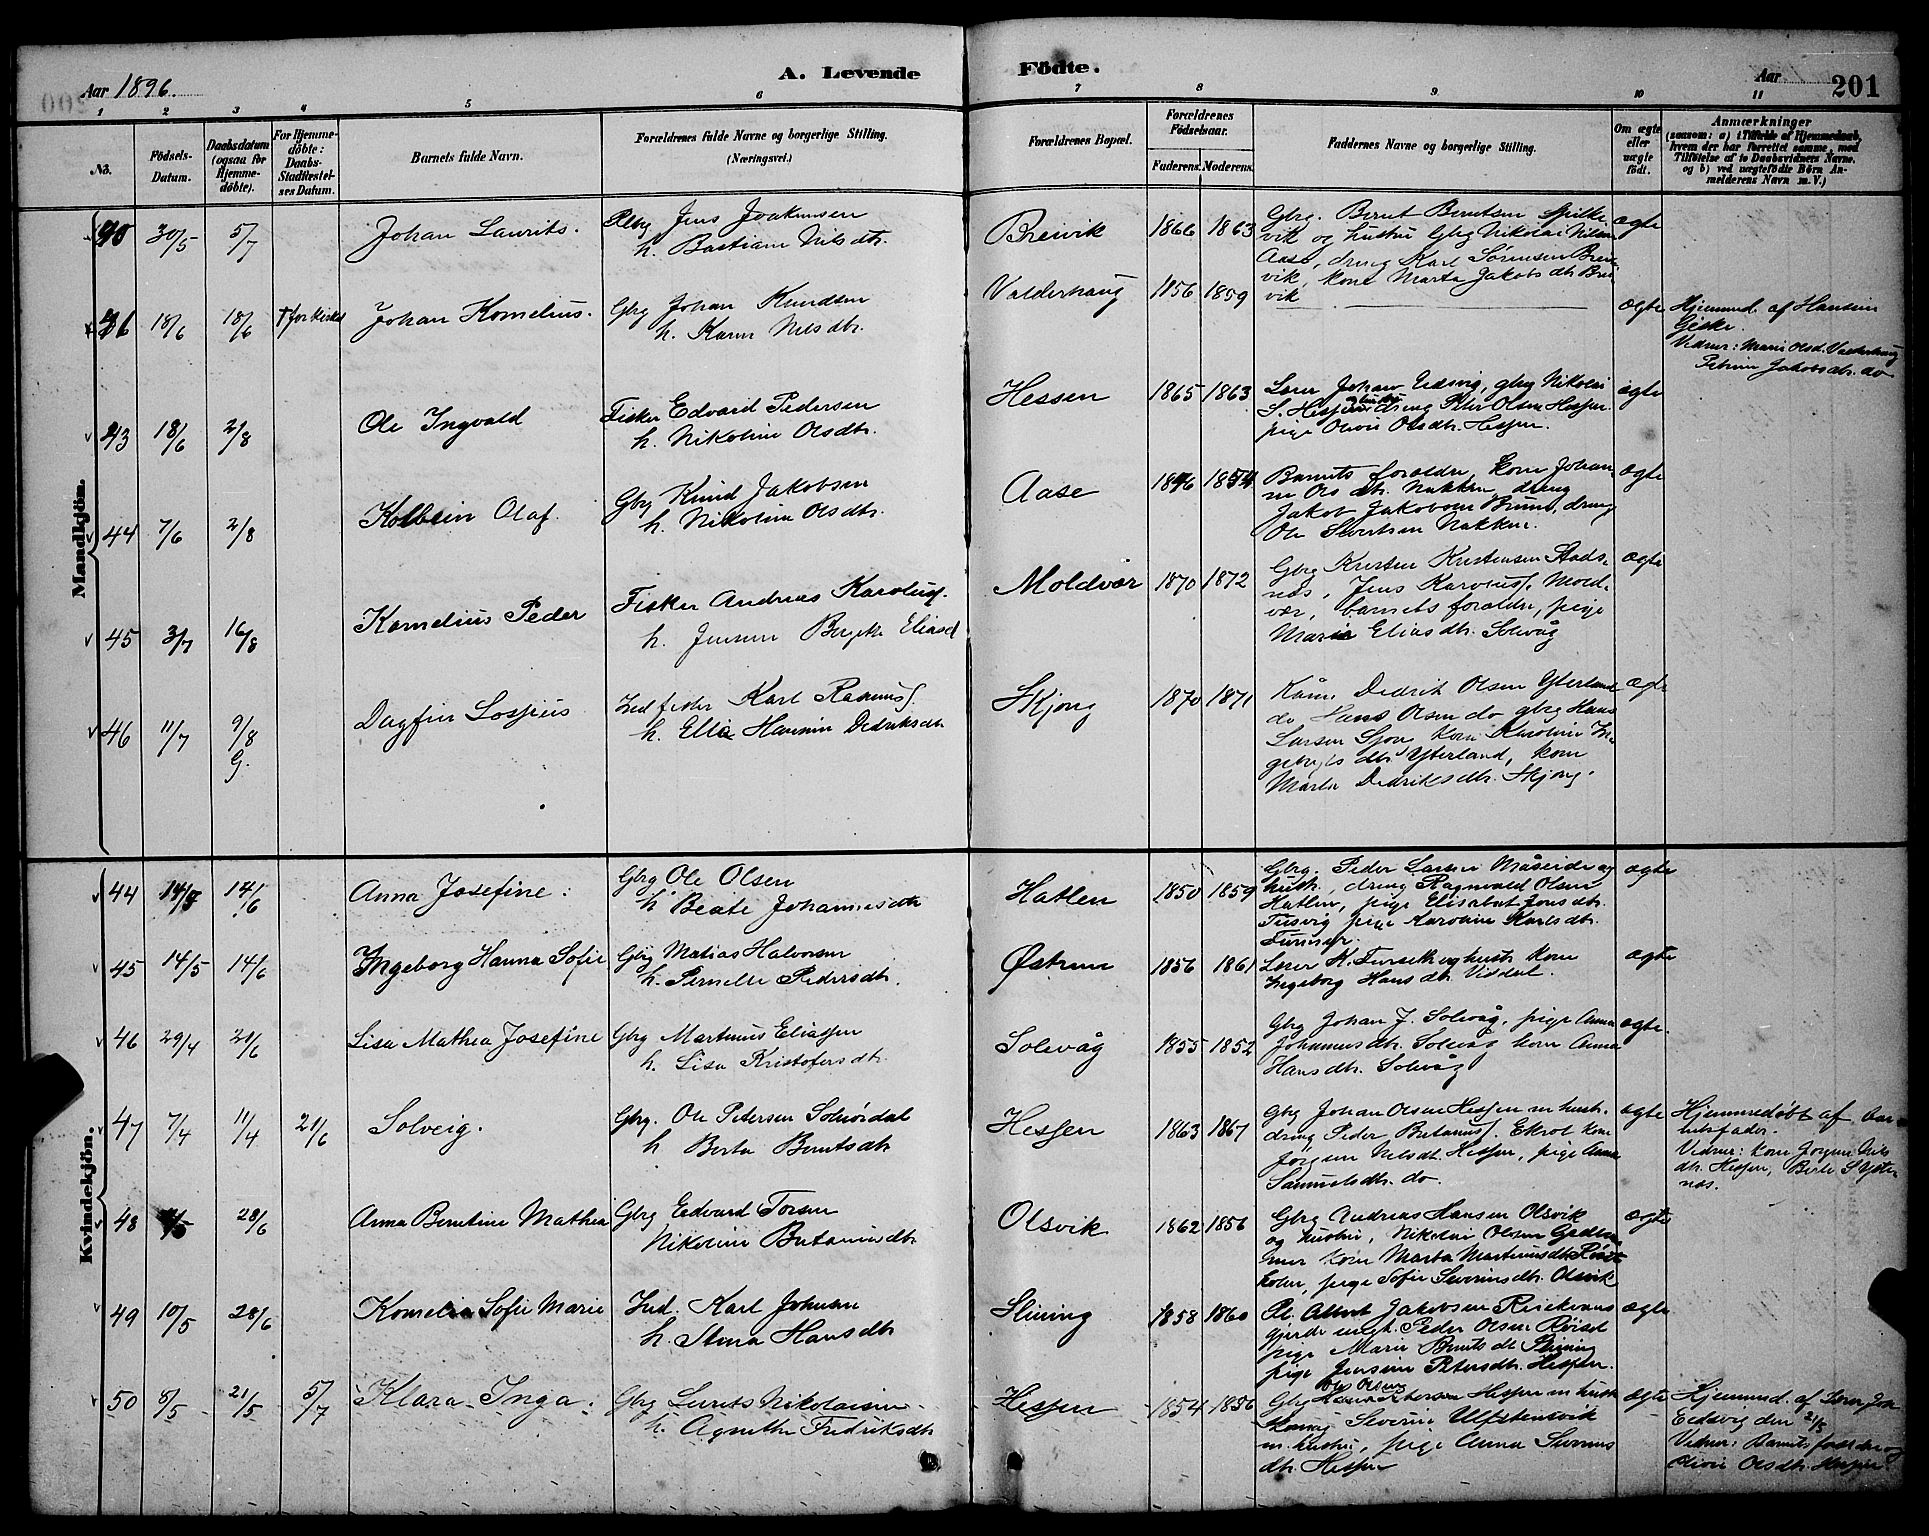 Aar 1896.
A. Levende
Födte.
Aar
201
1 2 3 4 5 6 7 8 9 10 11
No.
Födsels-
Datum.
Daabsdatum
(ogsaa for
Hjemme-
döbte).
For Hjemme-
döbte:
Daabs-
Stadfæstel-
ses Datum.
Barnets fulde Navn.
Forældrenes fulde Navne og borgerlige Stilling.
(Næringsvei.)
Forældrenes Bopæl.
Forældrenes
Födselsaar.
Faderens. Moderens.
Faddernes Navne og borgerlige Stilling.
Om ægte
eller
uægte
födt.
Anmærkninger
(saasom: a) i Tilfælde af Hjemmedaab,
hvem der har forrettet samme, med
Tilföielse af to Daabsvidners Navne,
og b) ved uægtefödte Börn An-
melderens Navn m. V.)
Mandkjön.
30/5 5/7 Johan Laurits.
Jens Joakimsen
h. Bastiane Nilsdtr.
Breivik 1866 1863
Gbrg. Bernt Berntsen Spilke
vik og hustru Gbrg Nikolai Nilsen
Aase, dreng Karl Sørensen Brei
vik, kone Marta Jakobsdtr. Brei
vik
ægte
36 18/6 18/6 Johan Kornelius.
Gbrg Johan Knudsen
h. Karen Nilsdtr.
Valderhaug 1856 1859
ægte
Hjemmed. af Hansine
Giske.
Vidner: Marie Olsd. Valderhaug
Petrine Jakobsdtr. do
43 18/6 2/8 Ole Ingvald
Fisker Edvard Pedersen
h. Nikoline Olsdtr.
Hessen 1865 1863
Lærer Johan Eidsvig, gbrg Nikolai
S. Hessen dreng Peter Olsen Hessen
pige Olivie Olsdtr. Hessen.
ægte
44 7/6 2/8 Kolbein Olaf.
Gbrg Knud Jakobsen
h. Nikoline Olsdtr.
Aase
Barnets forældre, kone Johan
ne Olsdtr. Nakken, dreng
Jakob Jakobsen Bruno, dreng
Ole Sivertsen Nakken.
ægte
45 3/7 16/8 Kornelius Peder
Fisker Andreas Karolus.
h. Jensine Elias
Moldvær 1870 1872
Gbrg Kristen Kristensen Stads-
næs, Jens Karolus. Mold-
vær, barnets forældre, pige
Marie Eliasdtr. Solevåg
ægte
46 11/7 9/8
G.
Dagfin
Karl Rasmus.
h. Didriksdtr
Skjong 1870 1871
Didrik Olsen Ytterland
do Hans Olsen do gbrg Hans
Larsen kone Karoline In
gebrigtsdtr Ytterland, kone
Marta Didriksdtr. Skjong.
ægte
Kvindekjön.
44 14/6 Anna Josefine.
Gbrg Ole Olsen
h. Beate Johannesdtr
Hatlen 1850 1859
Gbrg. Peder Larsen Måseide og
hustr., dreng Ragnvald Olsen
Hatlen, pige Elisabet Jonsdtr.
pige Karoline Karlsdtr.
ægte
45 14/5 14/6 Ingeborg Hanna Sofie
Gbrg Matias Halvorsen
h. Pernille Pedersdtr.
Østrem 1856 1861
Lærer K. Furseth og hustr. kone
Ingeborg Hansdtr. Vitsdal.
ægte
46 29/4 21/6 Lisa Mathea Josefine
Gbrg Martinus Eliassen
h. Lisa Kristofersdtr.
Solevåg 1855 1852
Gbrg Johan J. Solevåg, pige Anna
Johannesdtr. Solevåg kone Anna
Hansdtr. Solevåg
ægte.
47 7/4 11/4 21/6 Solveig.
Gbrg. Ole Petersen
h. Berta Berntsdtr
Hessen 1863 1867
Gbrg Johan Olsen Hessen m hustr.
dreng Peder kone
Jørgine Nilsdt. Hessen, pige Anna
Samuelsdtr. do.
ægte
Hjemmedøbt af bar-
nets fader.
Vidner: kone Jørgine Nils
dtr. Hessen, Berte
næs.
48 28/6 Anna Berntine Mathea
Gbrg Edvard Torsen
Nikoline
Olsvik 1862 1856
Gbrg Andreas Hansen Olsvik
og hustru, Nikolai Olsen
kone Marta Martinusdtr
holm, pige Sofie Severinsdtr. Olsvik
ægte
49 10/5 28/6 Kornelia Sofie Marie
Ind. Karl Johnsen
h. Stina Hansdtr
Slining 1858 1860
Albert Jakobsen
gjerde ungk. Peder Olsen
pige Marie Berntsdt Slining
pige Jensine Petersdtr. Hessen.
ægte
50 8/5 21/5 5/7 Klara Inga.
Gbrg Laurits Nikolaisen
h. Agnethe Fredriksdtr
Hessen 1854 1856
Ole Olsen
Gbrg Hessen m hustr
Severin Ulfstensvik
m. hustru, pige Anna Severins
dtr. Hessen
ægte
Hjemmed. af Lærer Joh
Eidsvig den 21/5
Vidner: Barnets forældre og
Olivie Olsdtr. Hessen